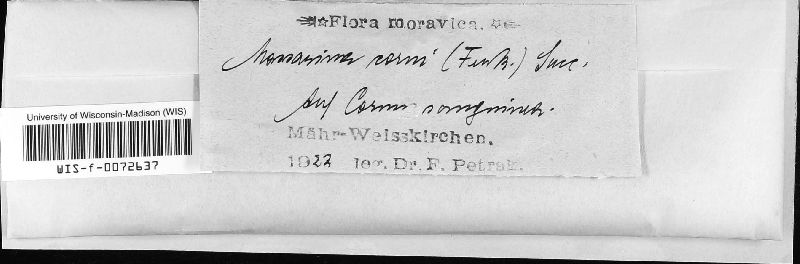 Flora moravica.
Massarina corni (Fuck.) Sacc.
Auf Cornus sanguinea.
Mähr-Weisskirchen.
1922 leg. Dr. F. Petrak.
University of Wisconsin-Madison (WIS)
WIS-f-0072637